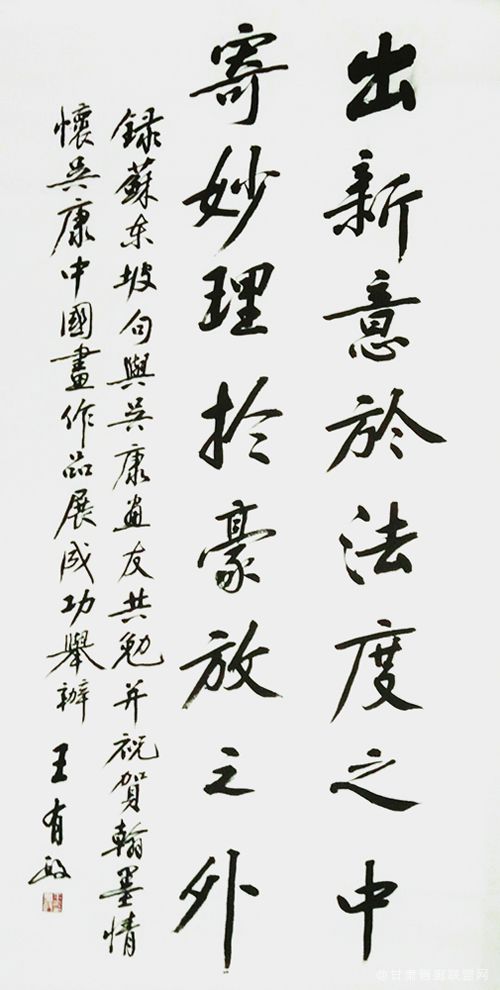 出新意於法度之中
寄妙理於豪放之外
録蘇东坡句與吴康畫友共勉并祝賀翰墨情
懷吴康中國畫作品展成功舉辦
王有